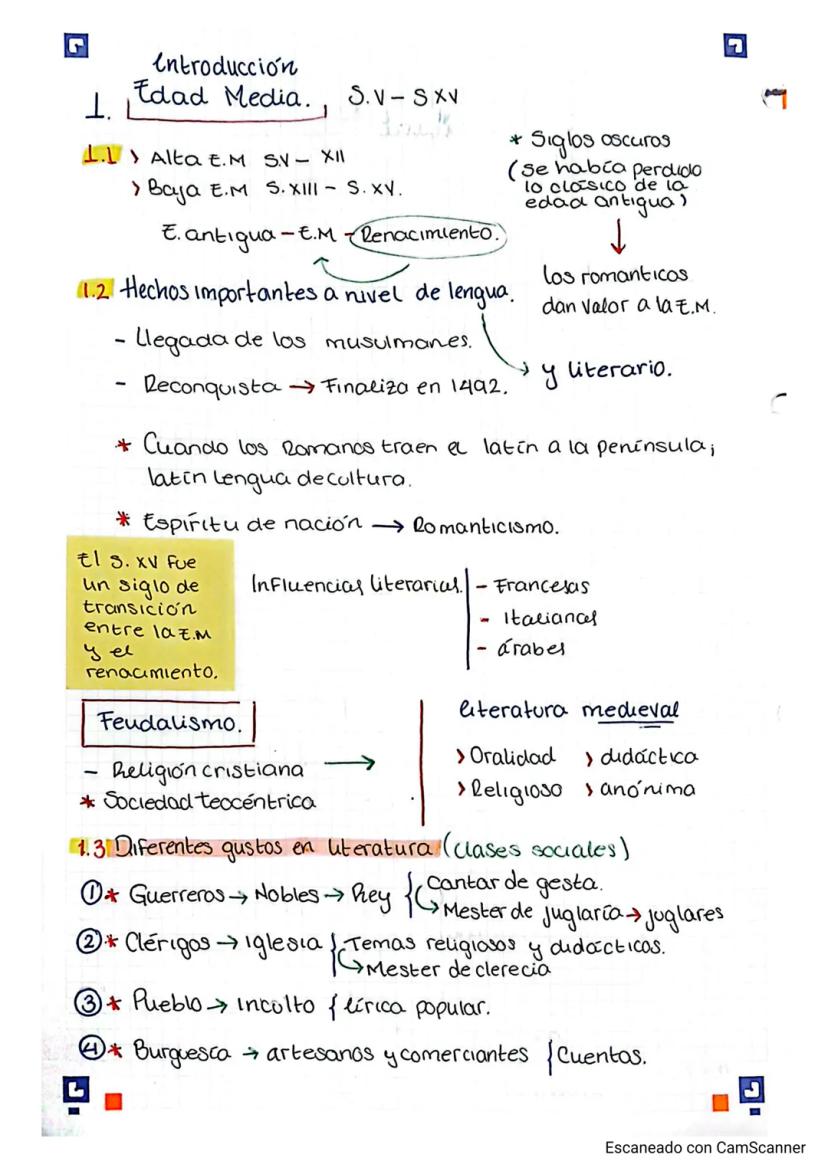 Introducción
1. Edad Media. S.V - S XV
1.1 > Alta E.M SV - XII
> Baja E.M S.XIII - S.XV.
* Siglos oscuros
(se había perdido
lo clásico de la
edad antigua)
↓
los romanticos
dan valor a la E.M.
E. antigua - E.M - Renacimiento.
1.2 Hechos importantes a nivel de lengua.
y literario.
- Llegada de los musulmanes.
- Reconquista → Finaliza en 1492.
* Cuando los Romanos traen el latín a la península;
latín lengua de cultura.
* Espíritu de nación → Romanticismo.
El S. XV fue
un siglo de
transición
entre la E.M
y el
renacimiento.
Influencias literarias. - Francesas
- Italianas
- árabes
Feudalismo.
- Religión cristiana →
* Sociedad teocéntrica
literatura medieval
> Oralidad > didáctica
> Religioso > anónima
1.3 Diferentes gustos en literatura (clases sociales)
① * Guerreros → Nobles → Rey { Cantar de gesta.
↳ Mester de juglaría → juglares
② * Clérigos → iglesia { Temas religiosos y didácticos.
↳ Mester de clerecia
③ * Pueblo → inculto { lírica popular.
④ * Burguesca → artesanos y comerciantes { Cuentos.
Escaneado con CamScanner